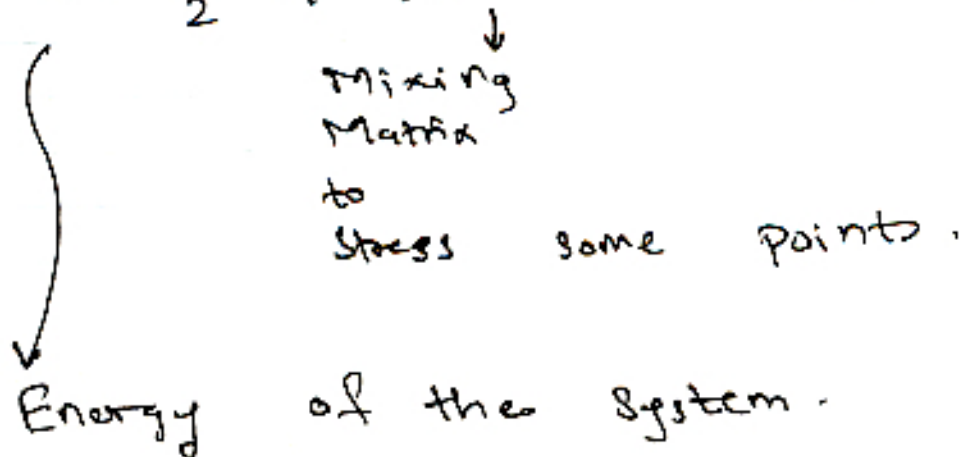 2
Mixing
Matrix
to
Stress some points.
Energy of the system.